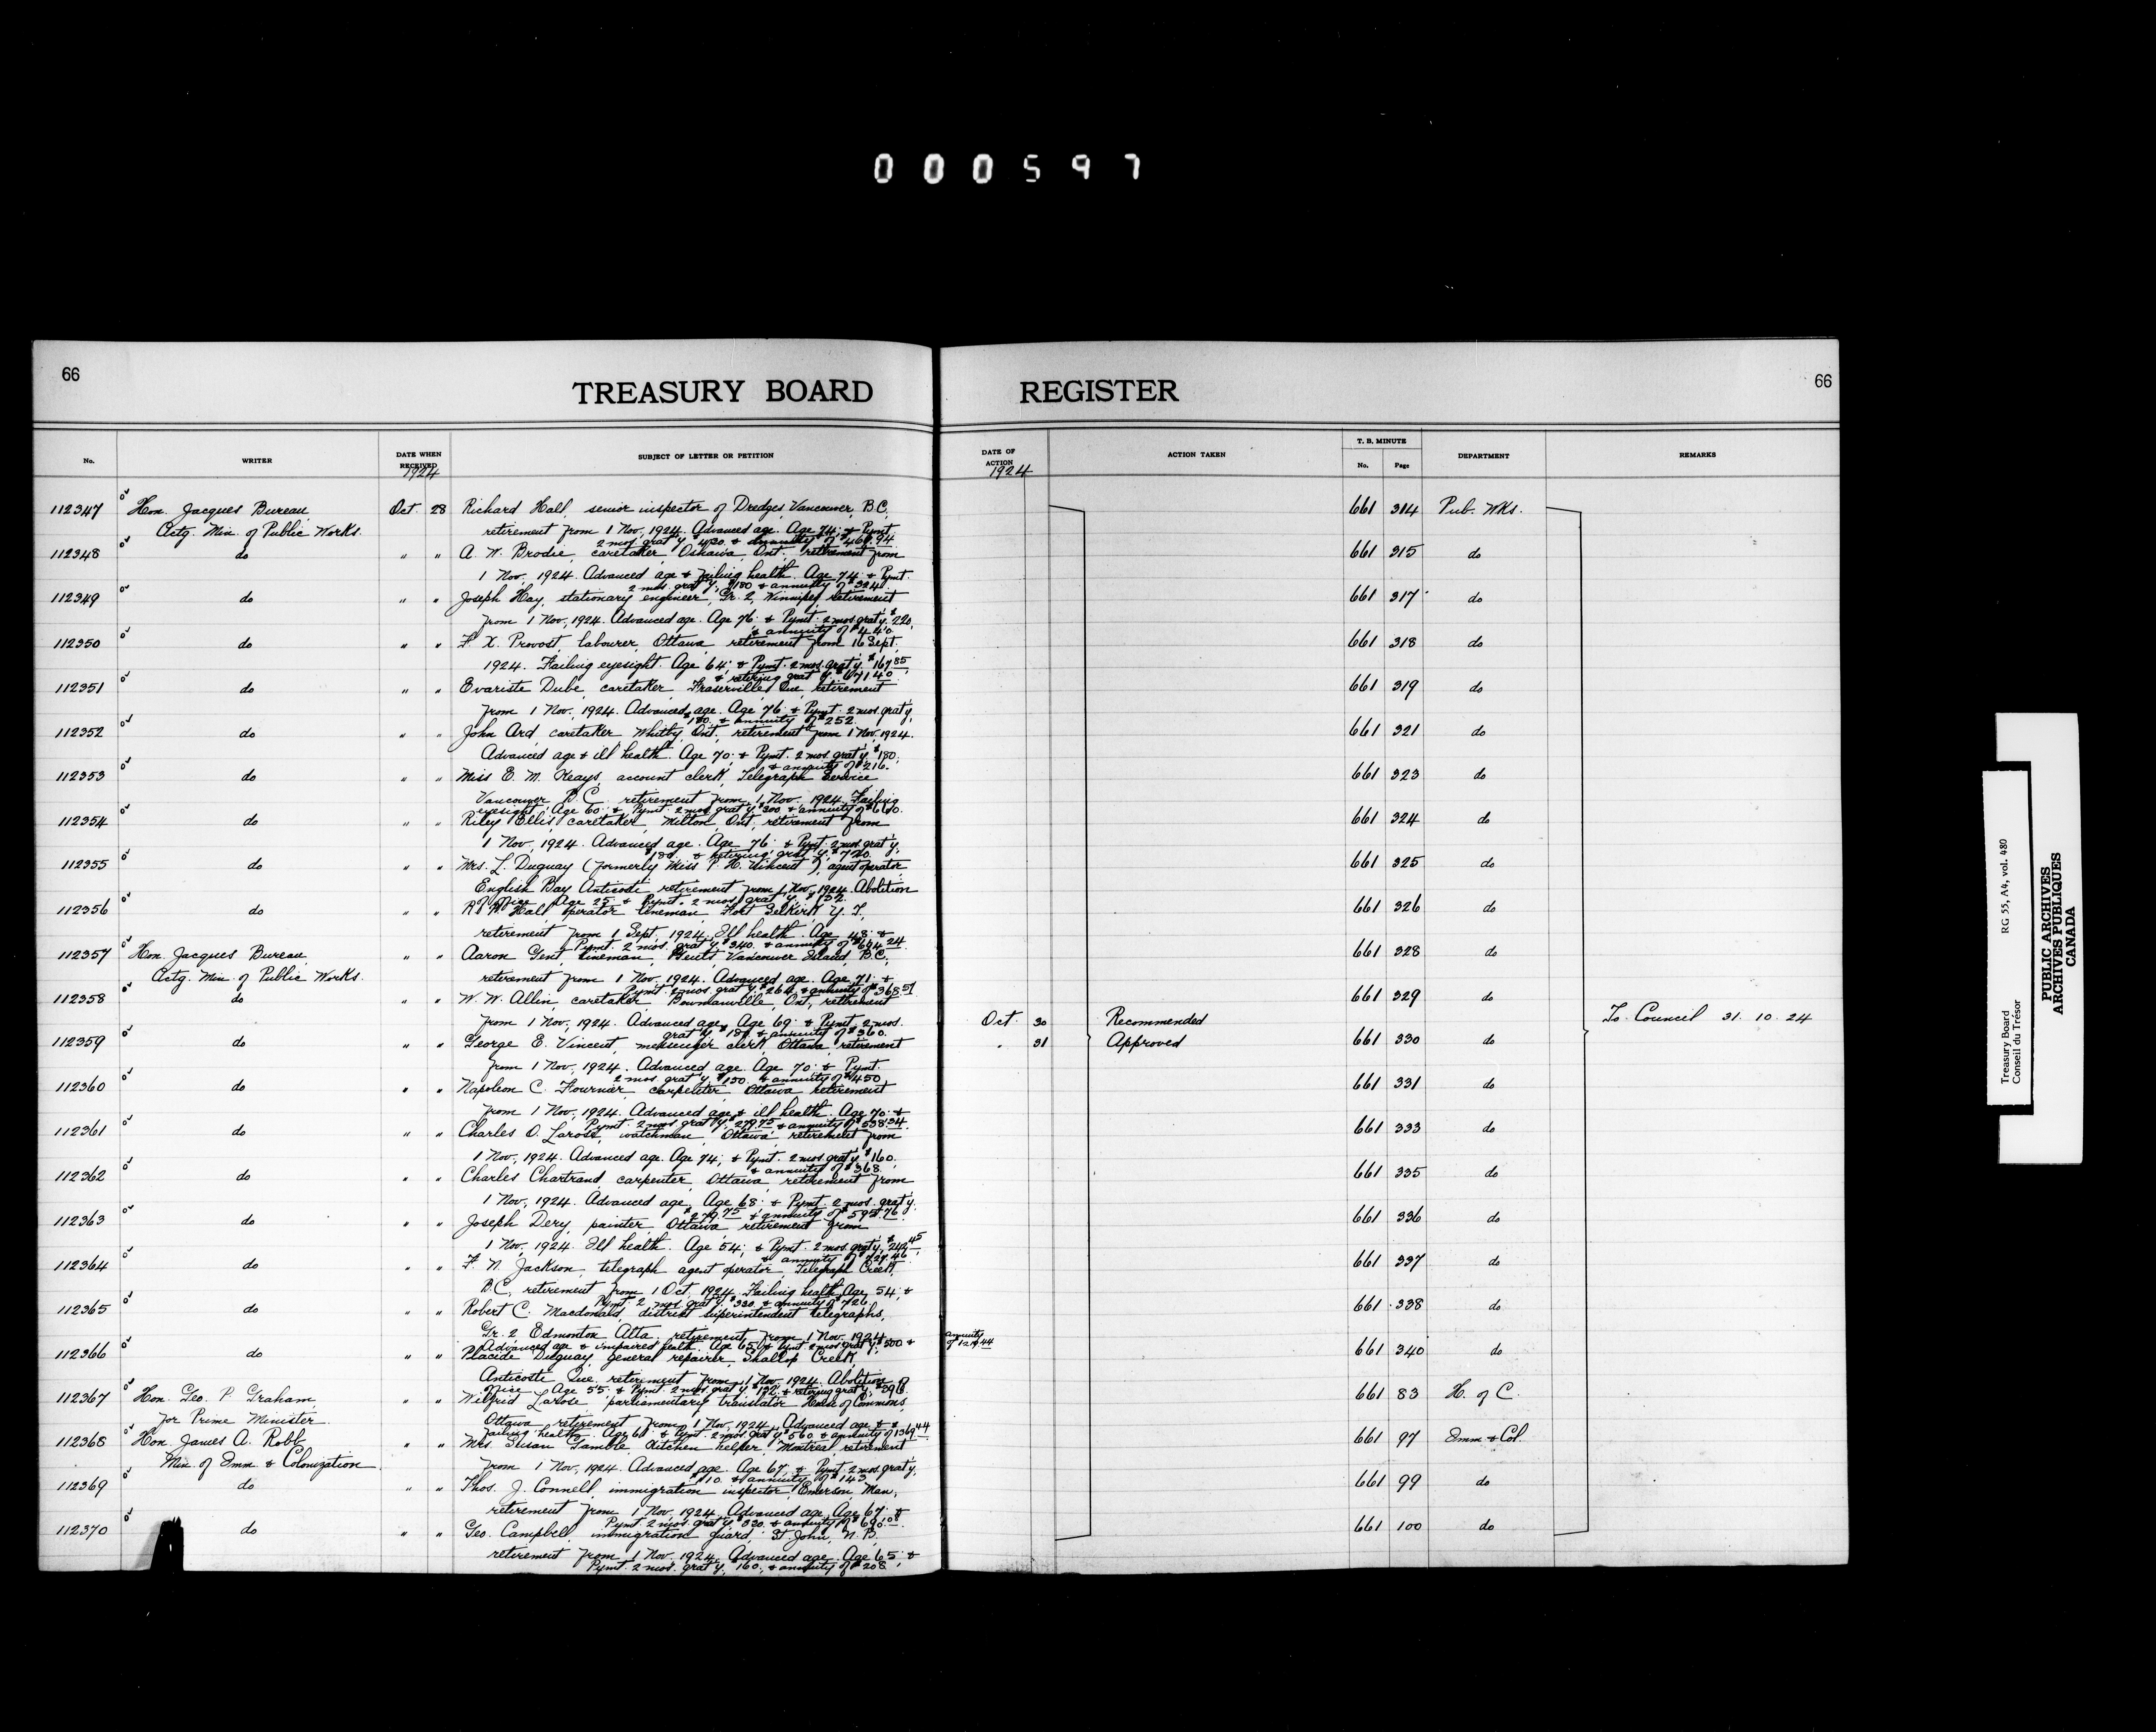 000597
66
TREASURY BOARD REGISTER
66
No. WRITER DATE WHEN RECEIVED SUBJECT OF LETTER OR PETITION DATE OF ACTION ACTION TAKEN T. B. MINUTE No. Page DEPARTMENT REMARKS
1924 1924
112347 Hon. Jacques Bureau Oct 28 Richard Hall, senior inspector of Dredges Vancouver, B.C. 661 314 Pub. Wks.
Actg. Min. of Public Works. retirement from 1 Nov, 1924. Advanced age. Age 74; & Pymt
2 mos grat'y. $420. & annuity of $468.94
112348 do " " A. W. Brodie, caretaker Oshawa Ont. retirement from 661 315 do
1 Nov. 1924. Advanced age & failing health. Age 74 & Pymt.
2 mos. grat'y. $180 & annuity of $324
112349 do " " Joseph Hay, stationary engineer, Gr. 2, Winnipeg retirement 661 317 do
from 1 Nov, 1924. Advanced age. Age 76; & Pymt. 2 mos grat'y. $220,
& annuity of $440
112350 do " " F. X. Provost, labourer, Ottawa retirement from 16 Sept. 661 318 do
1924. Failing eyesight. Age 64; & Pymt. 2 mos. grat'y. $167.85
& retiring grat'y. $671.40
112351 do " " Evariste Dube, caretaker, Fraserville, Que, retirement 661 319 do
from 1 Nov. 1924. Advanced age. Age 76; & Pymt. 2 mos. grat'y,
$180. & annuity of $252.
112352 do " " John Ard caretaker Whitby, Ont. retirement from 1 Nov, 1924. 661 321 do
Advanced age & ill health. Age 70; & Pymt. 2 mos grat'y. $180;
& annuity of $216.
112353 do " " Miss E. M. Keays, account clerk, Telegraph Service 661 323 do
Vancouver B.C. retirement from 1 Nov. 1924. Failing
eyesight. Age 60; & Pymt. 2 mos grat'y. $300 & annuity of $660.
112354 do " " Riley Ellis, caretaker, Milton, Ont, retirement from 661 324 do
1 Nov, 1924. Advanced age. Age 76; & Pymt. 2 mos grat'y.
$180. & retiring grat'y. $720.
112355 do " " Mrs. L. Duguay (formerly Miss P. H. Vincent), agent operator 661 325 do
English Bay Anticosti retirement from 1 Nov, 1924. Abolition
of office. Age 25 & Pymt. 2 mos grat'y. $132.
112356 do " " Hall, operator lineman, Fort Selkirk, Y. T, 661 326 do
retirement from 1 Sept. 1924. Ill health. Age 48; &
Pymt. 2 mos. grat'y. $340. & annuity of $644.24
112357 Hon. Jacques Bureau " " Aaron Gent, lineman, Vancouver Island, B.C. 661 328 do
Actg. Min. of Public Works. retirement from 1 Nov. 1924. Advanced age. Age 71; &
Pymt. 2 mos. grat'y. $264. & annuity of $368.51
112358 do " " W. W. Allin, caretaker Bowmanville, Ont, retirement 661 329 do
from 1 Nov, 1924. Advanced age. Age 69; & Pymt. 2 mos. Oct. 30 Recommended To Council 31. 10. 24
grat'y. $180 & annuity of $360.
112359 do " " George E. Vincent, messenger clerk Ottawa, retirement " 31 Approved 661 330 do
from 1 Nov, 1924. Advanced age. Age 70; & Pymt.
2 mos grat'y. $150. & annuity of $450
112360 do " " Napoleon C. Fournier, carpenter, Ottawa retirement 661 331 do
from 1 Nov, 1924. Advanced age & ill health. Age 70; &
Pymt. 2 mos grat'y. $279.75 & annuity of $538.34
112361 do " " Charles O. Larose, watchman, Ottawa retirement from 661 333 do
1 Nov, 1924. Advanced age. Age 74; & Pymt. 2 mos grat'y. $160.
& annuity of $368.
112362 do " " Charles Chartrand carpenter, Ottawa retirement from 661 335 do
1 Nov, 1924. Advanced age. Age 68; & Pymt. 2 mos. grat'y.
$279.75 & annuity of $595.76
112363 do " " Joseph Dery, painter Ottawa retirement from 661 336 do
1 Nov, 1924. Ill health. Age 54; & Pymt. 2 mos. grat'y.
& annuity of
112364 do " " F. N. Jackson, telegraph agent operator, Telegraph Creek, 661 337 do
B.C, retirement from 1 Oct. 1924. Failing health. Age 54; &
Pymt. 2 mos grat'y. $330. & annuity of $726.
112365 do " " Robert C. Macdonald, district superintendent telegraphs, 661 338 do
Gr. 2 Edmonton Alta. retirement from 1 Nov. 1924.
Advanced age & impaired health. Age 65; & Pymt. 2 mos grat'y. $500 & annuity
112366 do " " Placide Duguay, general repairer, Shallop Creek, 661 340 do
Anticosti Que. retirement from 1 Nov, 1924. Abolition
office. Age 55; & Pymt. 2 mos grat'y. $132. & retiring grat'y. $396.
112367 Hon. Geo. P. Graham, " " Wilfrid Larose, parliamentary translator House of Commons, 661 83 H. of C.
for Prime Minister. Ottawa retirement from 1 Nov, 1924. Advanced age &
failing health. Age 61; & Pymt. 2 mos. grat'y. $560. & annuity of $1369.44
112368 Hon. James A. Robb " " Mrs. Susan Gamble, kitchen helper Montreal retirement 661 97 Imm & Col.
Min. of Imm. & Colonization from 1 Nov, 1924. Advanced age. Age 67; & Pymt. 2 mos. grat'y.
$110. & annuity of $143
112369 do " " Thos. J. Connell, immigration inspector, Emerson Man, 661 99 do
retirement from 1 Nov. 1924. Advanced age. Age 67; &
Pymt. 2 mos. grat'y. $330. & annuity of
112370 do " " Geo. Campbell, immigration guard, St. John, N. B. 661 100 do
retirement from 1 Nov. 1924. Advanced age. Age 65; &
Pymt. 2 mos. grat'y. 160. & annuity of $208
Treasury Board RG 55, A4, vol. 480
Conseil du Trésor
PUBLIC ARCHIVES
ARCHIVES PUBLIQUES
CANADA